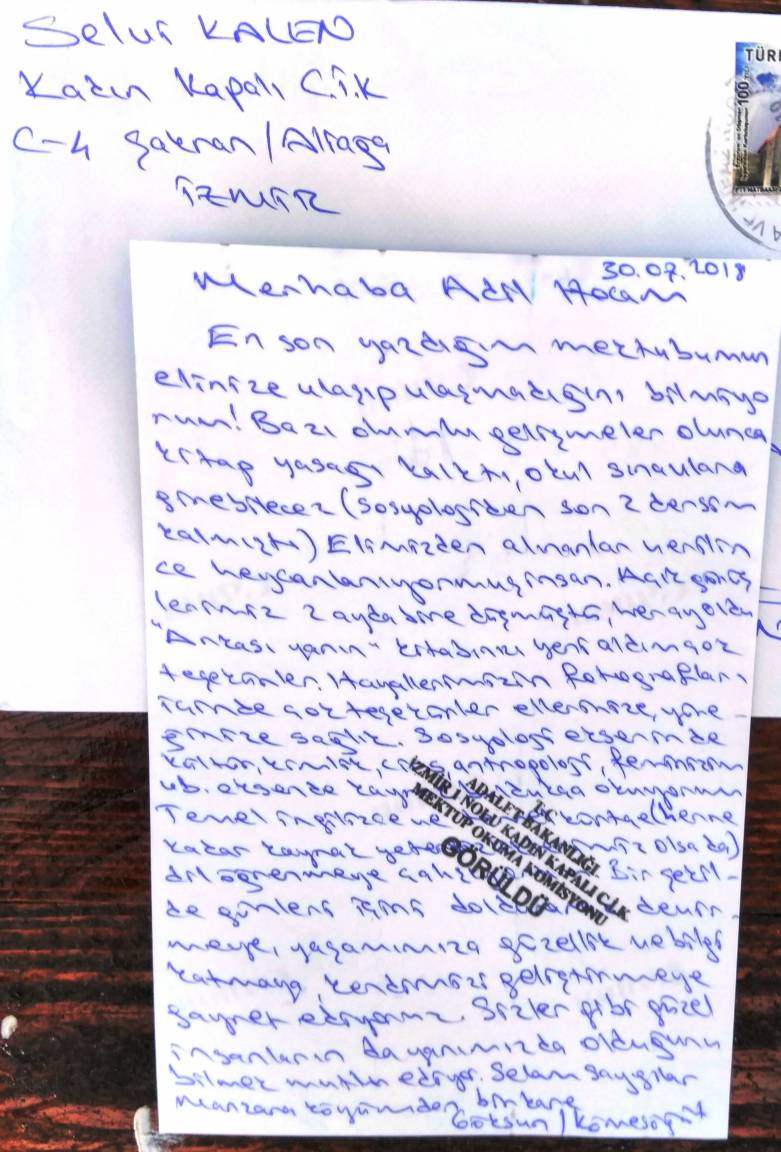 Selvi KALEN
Kadın Kapalı C.İ.K
C-4 Şakran/Aliağa
İZMİR
TÜR
100
30.07.2018
Merhaba Adil Hocam
En son yazdığım mektubumun
elinize ulaşıp ulaşmadığını bilmiyo
rum! Bazı olumlu gelişmeler olunca
kitap yasağı kalktı, okul sınavlara
girebilecez (Sosyolojiden son 2 dersim
kalmıştı) Elimizden alınanlar verilin
ce heycanlanıyormuş insan. Açık görüş
lerimiz 2 ayda bire düşmüştü, her ay oldu
"Arkası yarın" kitabınızı yeni aldım çok
teşekkürler. Hayallerimizin fotoğrafları
içinde çok teşekkürler ellerinize, yüre-
ğinize sağlık. Sosyoloji ekseninde
kültür, kimlik, antropoloji, feminizm
vb. eksende okuyorum
Temel ingilizce ve (her ne
kadar kaynak olsa da)
dil öğrenmeye Bir şekil-
de günleri içini devir-
meye, yaşamımıza güzellik ve bilgi
katmaya, kendimizi geliştirmeye
gayret ediyoruz. Sizler gibi güzel
insanların da yanımızda olduğunu
bilmek mutlu ediyor. Selam saygılar
Manzara köyümden bir kare
Göksun /
T.C.
ADALET BAKANLIĞI
İZMİR 1 NOLU KADIN KAPALI C.İ.K
MEKTUP OKUMA KOMİSYONU
GÖRÜLDÜ